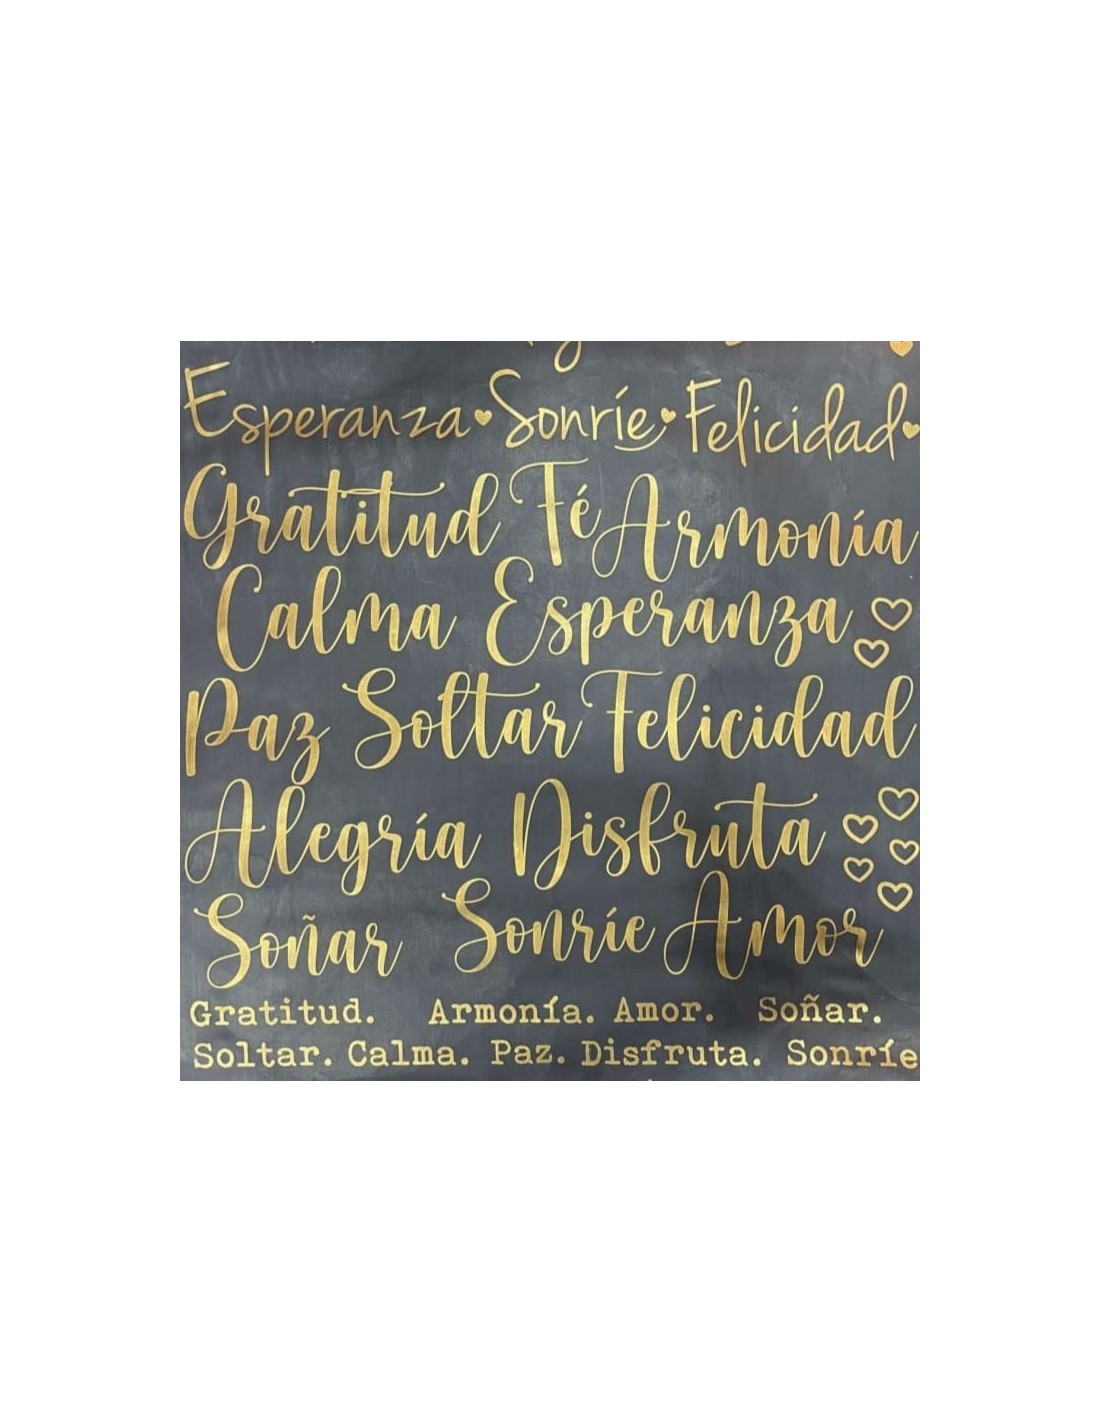 Esperanza Sonríe Felicidad
Gratitud Fé Armonía
Calma Esperanza
Paz Soltar Felicidad
Alegría Disfruta
Soñar Sonríe Amor
Gratitud. Armonía. Amor. Soñar.
Soltar. Calma. Paz. Disfruta. Sonríe